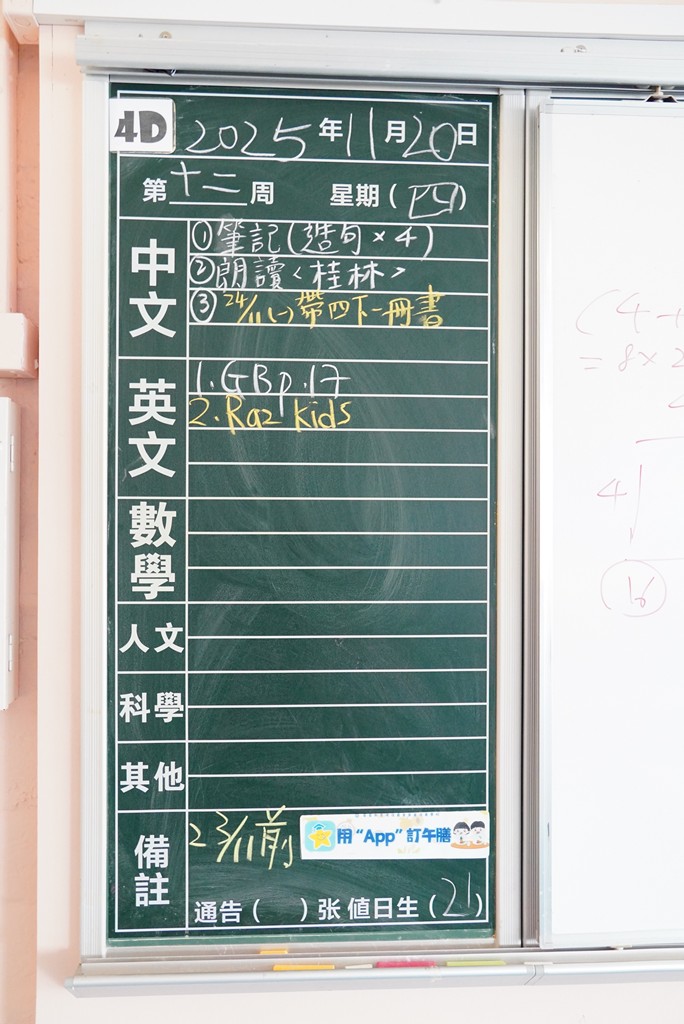 4D 2025年11月20日
第十二周 星期(四)
中文
①筆記(造句×4)
②朗讀<桂林>
③24/11(一)帶四下一冊書
英文
1. GB p.17
2. Raz kids
數學
人文
科學
其他
備註
23/11前 用“App”訂午膳
通告( )张 值日生(21)
(4+
=8×2
4
16